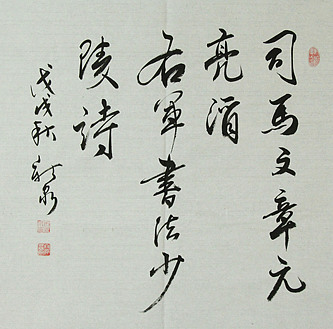 司馬文章元
亮酒
右軍書法少
陵詩
戊戌秋